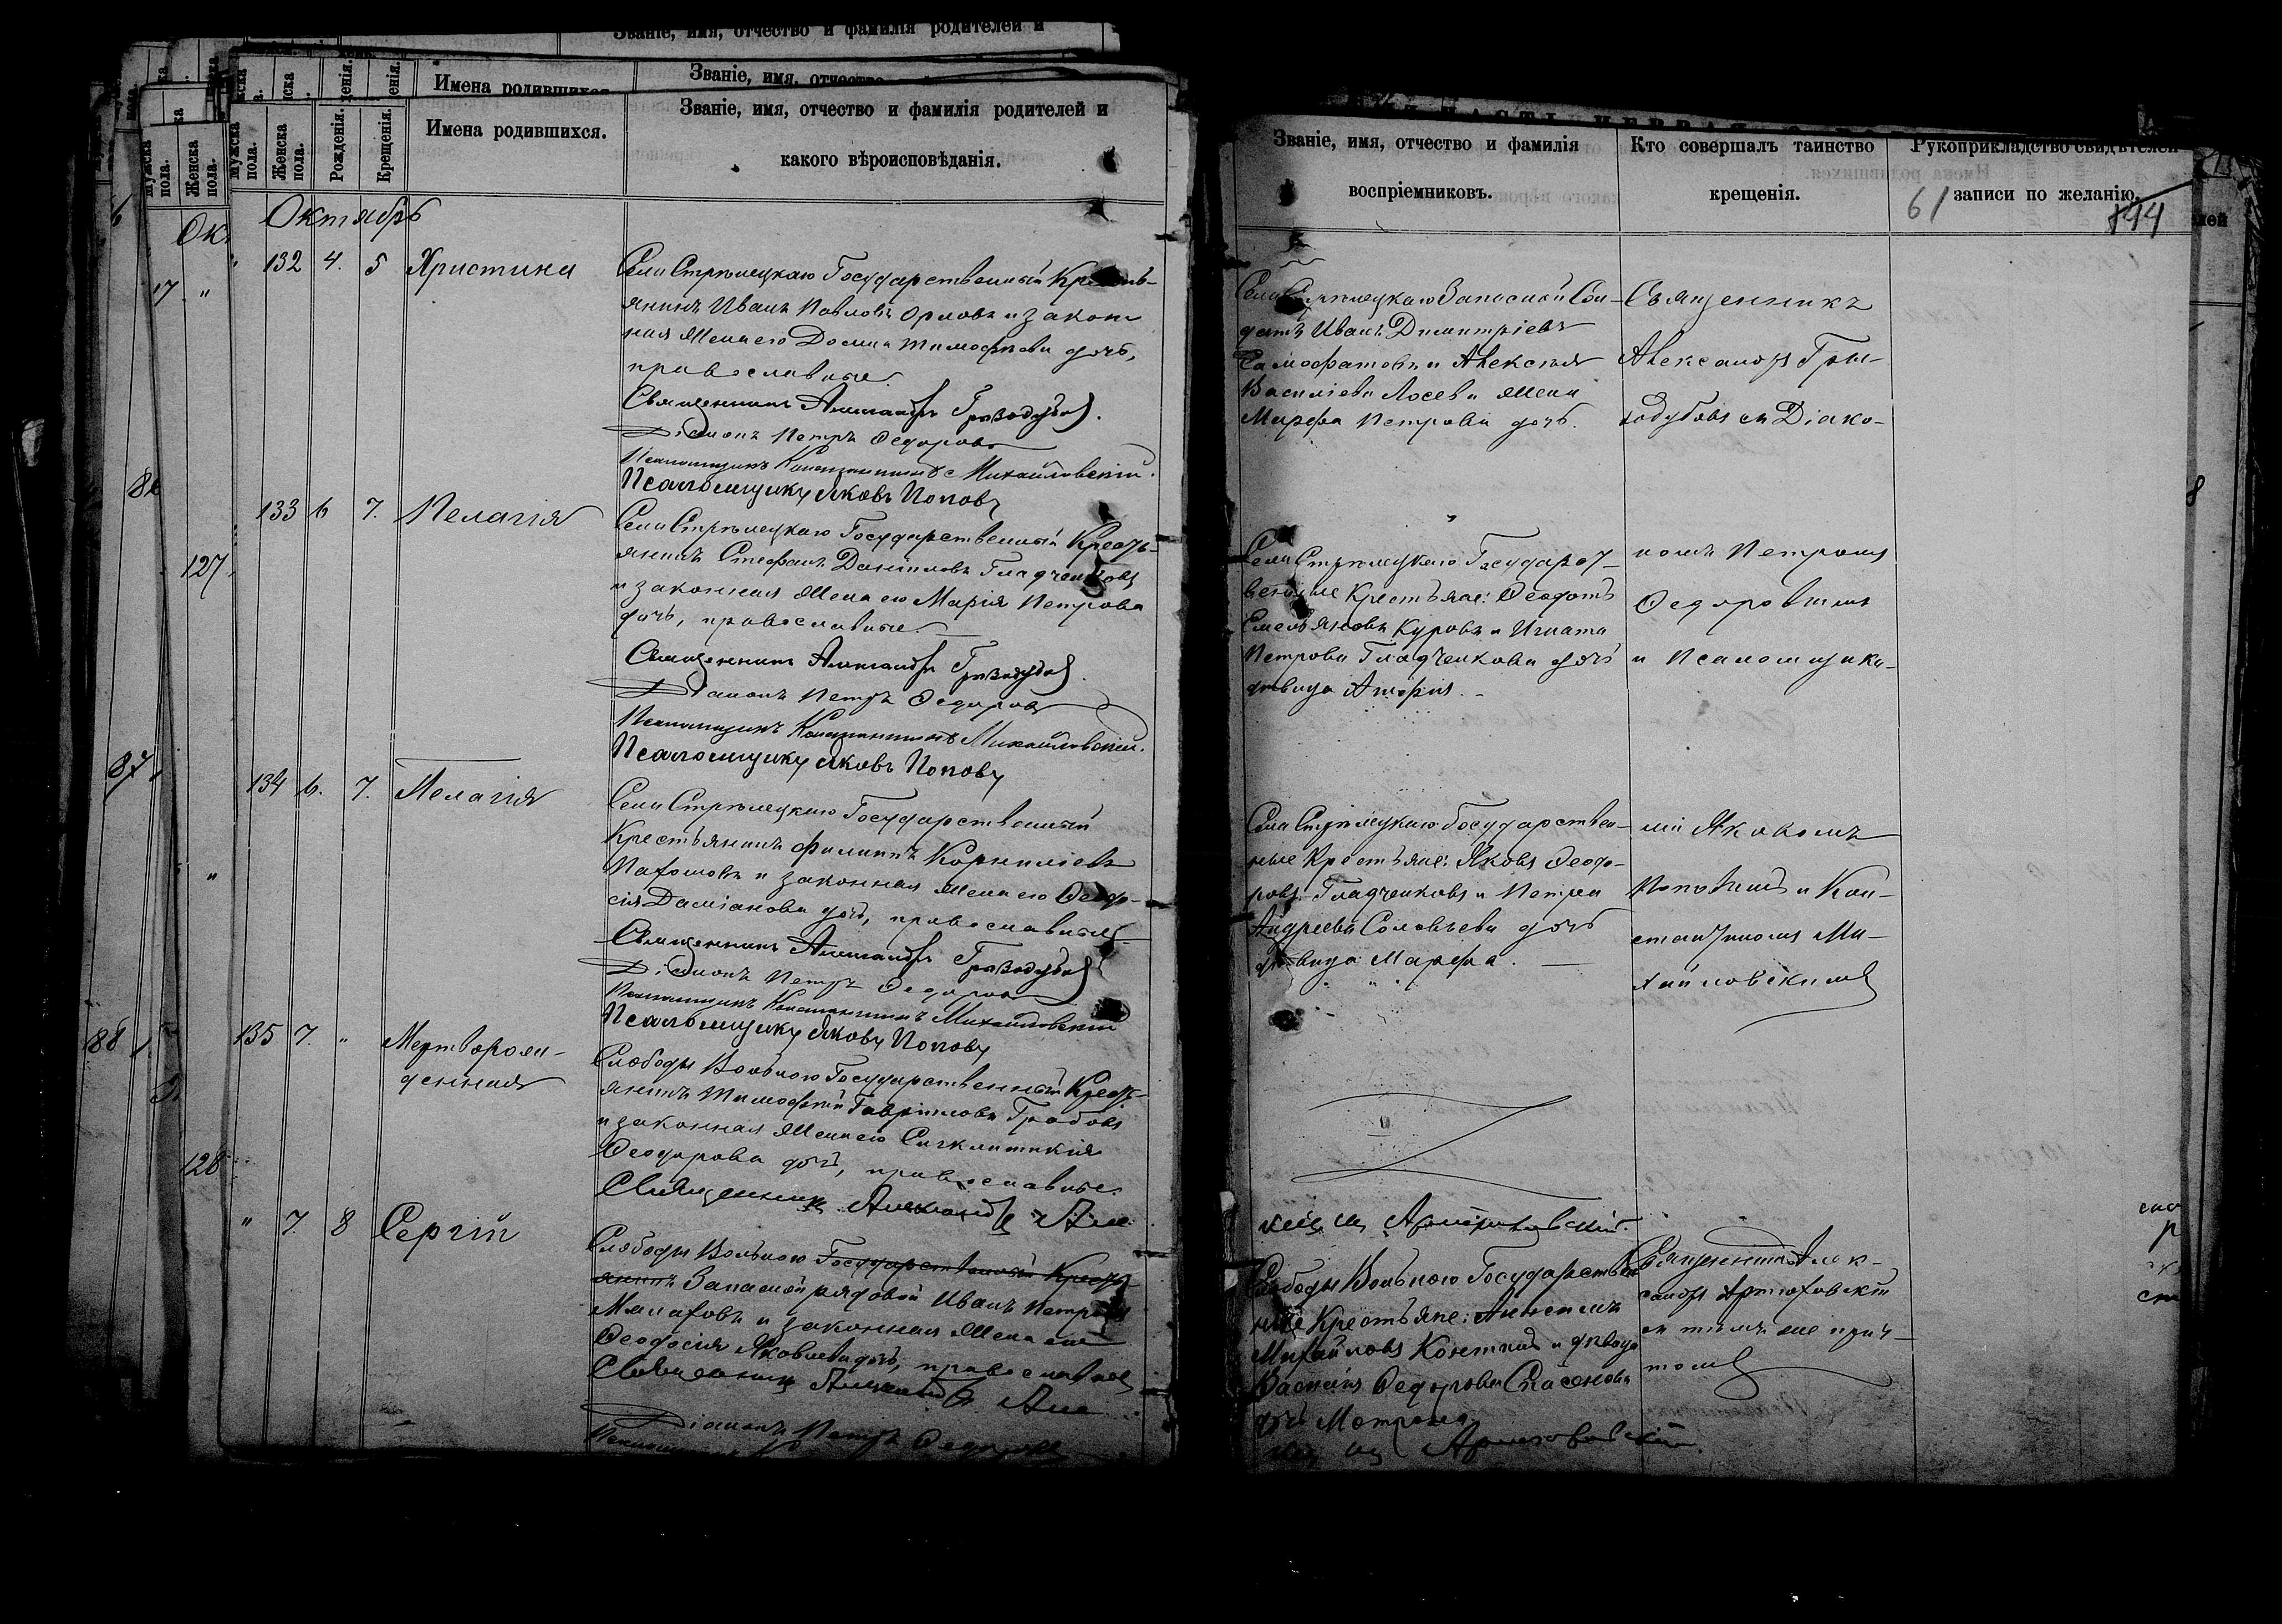 Званіе, имя, отчество и фамилія родителей и
Имена родившихся
Званіе, имя, отчество
Мужска пола.
Женска пола.
Рожденія.
Крещенія.
Имена родившихся.
Званіе, имя, отчество и фамилія родителей и
какого вѣроисповѣданія.
Октябрь
" 132 4. 5 Христина
Села Стрѣлецкаго Государственный Кресть-
янинъ Иванъ Павловъ Орловъ и закон-
ная жена его Домна Тимофѣева дочь,
православные.
Священникъ Александръ
Діаконъ Петръ Ѳедоровъ
Псаломщикъ Константинъ Михайловскій.
Псаломщикъ Яковъ Поповъ
133 6 7. Пелагія
Села Стрѣлецкаго Государственный Кресть-
янинъ Стефанъ Даніиловъ Гладченковъ
и законная жена его Марія Петрова
дочь, православные.
Священникъ Александръ
Діаконъ Петръ Ѳедоровъ
Псаломщикъ Константинъ Михайловскій.
Псаломщикъ Яковъ Поповъ
134 6. 7. Пелагія
Села Стрѣлецкаго Государственный
Крестьянинъ Филиппъ Корниліевъ
Пахомовъ и законная жена его Ѳеодо-
сія Даміанова дочь, православные
Священникъ Александръ
Діаконъ Петръ Ѳедоровъ
Псаломщикъ Константинъ Михайловскій
Псаломщикъ Яковъ Поповъ
135 7. " Мертворож-
денная
Слободы Вольной Государственный Кресть-
янинъ Тимофей Гавріиловъ Грабовъ
и законная жена его Сигклитикія
Ѳеодорова дочь, православные.
Священникъ Александръ
" 7. 8 Сергій
Слободы Вольной Государственный Кресть-
янинъ Запасной рядовой Иванъ Петровъ
Малаховъ и законная жена его
Ѳеодосія Яковлева дочь, православные
Священникъ Александръ
Діаконъ Петръ Ѳедоровъ
Званіе, имя, отчество и фамилія
воспріемниковъ.
Кто совершалъ таинство
крещенія.
Рукоприкладство свидѣтелей
записи по желанію.
61
144
Села Стрѣлецкаго Запасной Сол-
датъ Иванъ Димитріевъ
и Алексѣя
Василіева Лосева жена
Марфа Петрова дочь.
Священникъ
Александръ Гри-
зодубовъ съ Діако-
Села Стрѣлецкаго Государст-
венные Крестьяне: Ѳеодотъ
Емельяновъ Куровъ и Игната
Петрова Гладченкова дочь
дѣвица
номъ Петромъ
Ѳедоровымъ
и Псаломщика-
Села Стрѣлецкаго Государствен-
ные Крестьяне: Яковъ Ѳеодо-
ровъ Гладченковъ и Петра
Андреева Соловьева дочь
дѣвица Марфа.
ми Яковомъ
Поповымъ и Кон-
стантиномъ Ми-
хайловскимъ
Слободы Вольной Государствен-
ные Крестьяне:
Михайловъ и дѣвица
Василія Ѳедорова
дочь Матрона
Священникъ Алек-
сандръ Артюховскій
съ тѣмъ же прич-
томъ